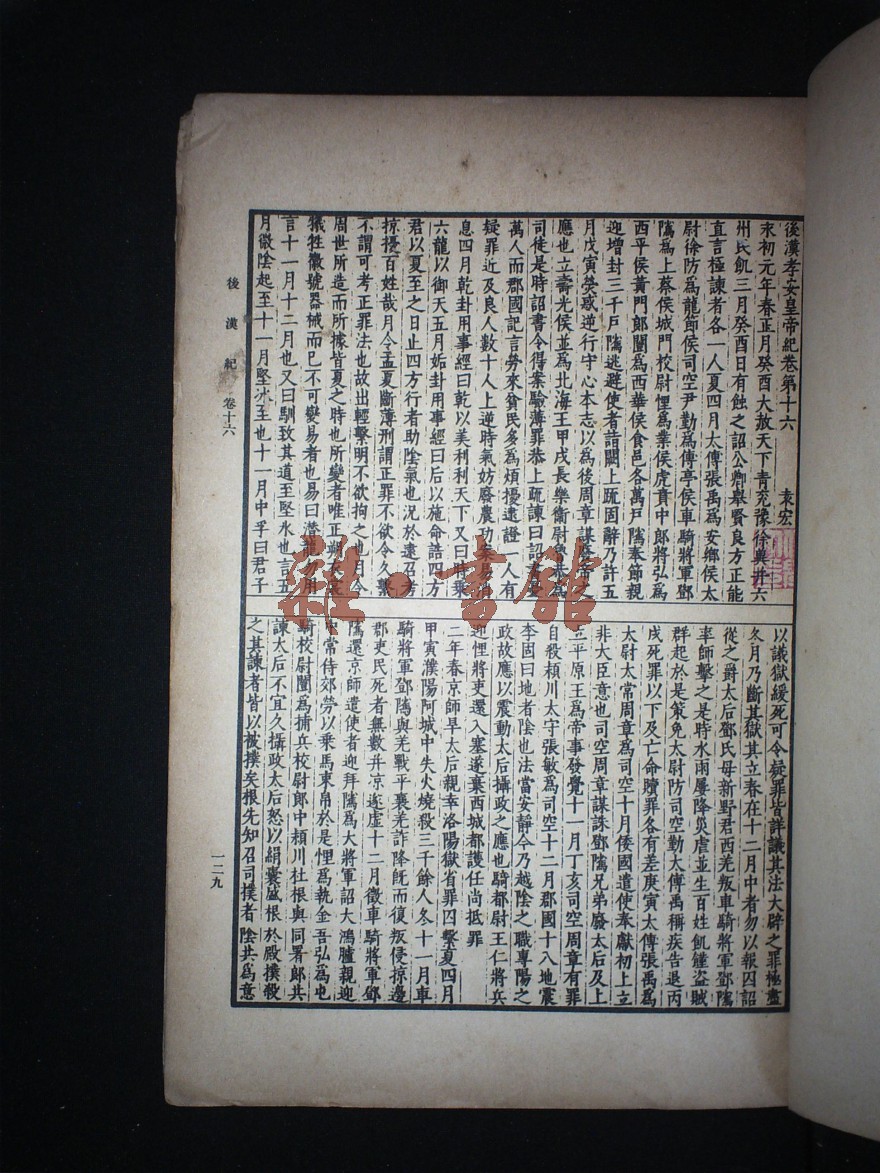 後漢孝安皇帝紀卷第十六 袁宏
永初元年春正月癸酉大赦天下青兗豫徐冀并六
州民飢三月癸酉日有蝕之詔公卿舉賢良方正能
直言極諫者各一人夏四月太傅張禹為安鄉侯太
尉徐防為龍節侯司空尹勤為傅亭侯車騎將軍鄧
隲為上蔡侯城門校尉悝為葉侯虎賁中郎將弘為
西平侯黃門郎閶為西華侯食邑各萬戶隲奉節親
迎增封三千戶隲逃避使者詣闕上疏固辭乃許五
月戊寅熒惑逆行守心本志以為後周章謀廢帝之
應也立壽光侯並為北海王甲戌長樂衛尉魯恭為
司徒是時詔書令得案驗薄罪恭上疏諫曰詔書憂
萬人而郡國記言勞來貧民多為煩擾遣證一人有
疑罪延及良人數十人上逆時氣妨廢農功案易消
息四月乾卦用事經曰乾以美利利天下又曰時乘
六龍以御天五月姤卦用事經曰后以施命誥四方
君以夏至之日止四方行者助陰氣也況於遠召考
掠擾百姓哉月令孟夏斷薄刑謂正罪不欲令久繫
不謂可考正罪法也故出輕繫明不欲拘之也月令
周世所造而所據皆夏之時也所變者唯正朔
犧牲徽號器械而已不可變易者也易曰潛龍勿用
言十一月十二月也又曰馴致其道至堅氷也言五
月徵陰起至十一月堅氷至也十一月中孚曰君子
以議獄緩死可令疑罪皆詳議其法大辟之罪極盡
冬月乃斷其獄其立春在十二月中者勿以報囚詔
從之爵太后鄧氏母新野君西羌叛車騎將軍鄧隲
率師擊之是時水雨屢降災虐並生百姓飢饉盜賊
群起於是策免太尉防司空勤太傅禹稱疾告退丙
戌死罪以下及亡命贖罪各有差庚寅太傅張禹為
太尉太常周章為司空十月倭國遣使奉獻初上立
非大臣意也司空周章謀誅鄧隲兄弟廢太后及上
立平原王為帝事發覺十一月丁亥司空周章有罪
自殺潁川太守張敏為司空十二月郡國十八地震
李固曰地者陰也法當安靜今乃越陰之職專陽之
政故應以震動太后攝政之應也騎都尉王仁將兵
迎悝將吏還入塞遂棄西城都護任尚抵罪
二年春京師旱太后親幸洛陽獄省罪囚繫夏四月
甲寅濮陽阿城中失火燒殺三千餘人冬十一月車
騎將軍鄧隲與羌戰平襄羌詐降既而復叛侵掠邊
郡吏民死者無數并涼遂虛十二月徵車騎將軍鄧
隲還京師遣使者迎拜隲為大將軍詔大鴻臚親迎
中常侍郊勞以乘馬束帛於是悝為執金吾弘為屯
騎校尉閶為捕兵校尉郎中潁川杜根與同署郎共
諫太后不宜久攝政太后怒以絹囊盛根於殿撲殺
之其諫者皆以被撲矣根先知召司撲者陰共為意
後漢紀 卷十六
一二九
雜·書館